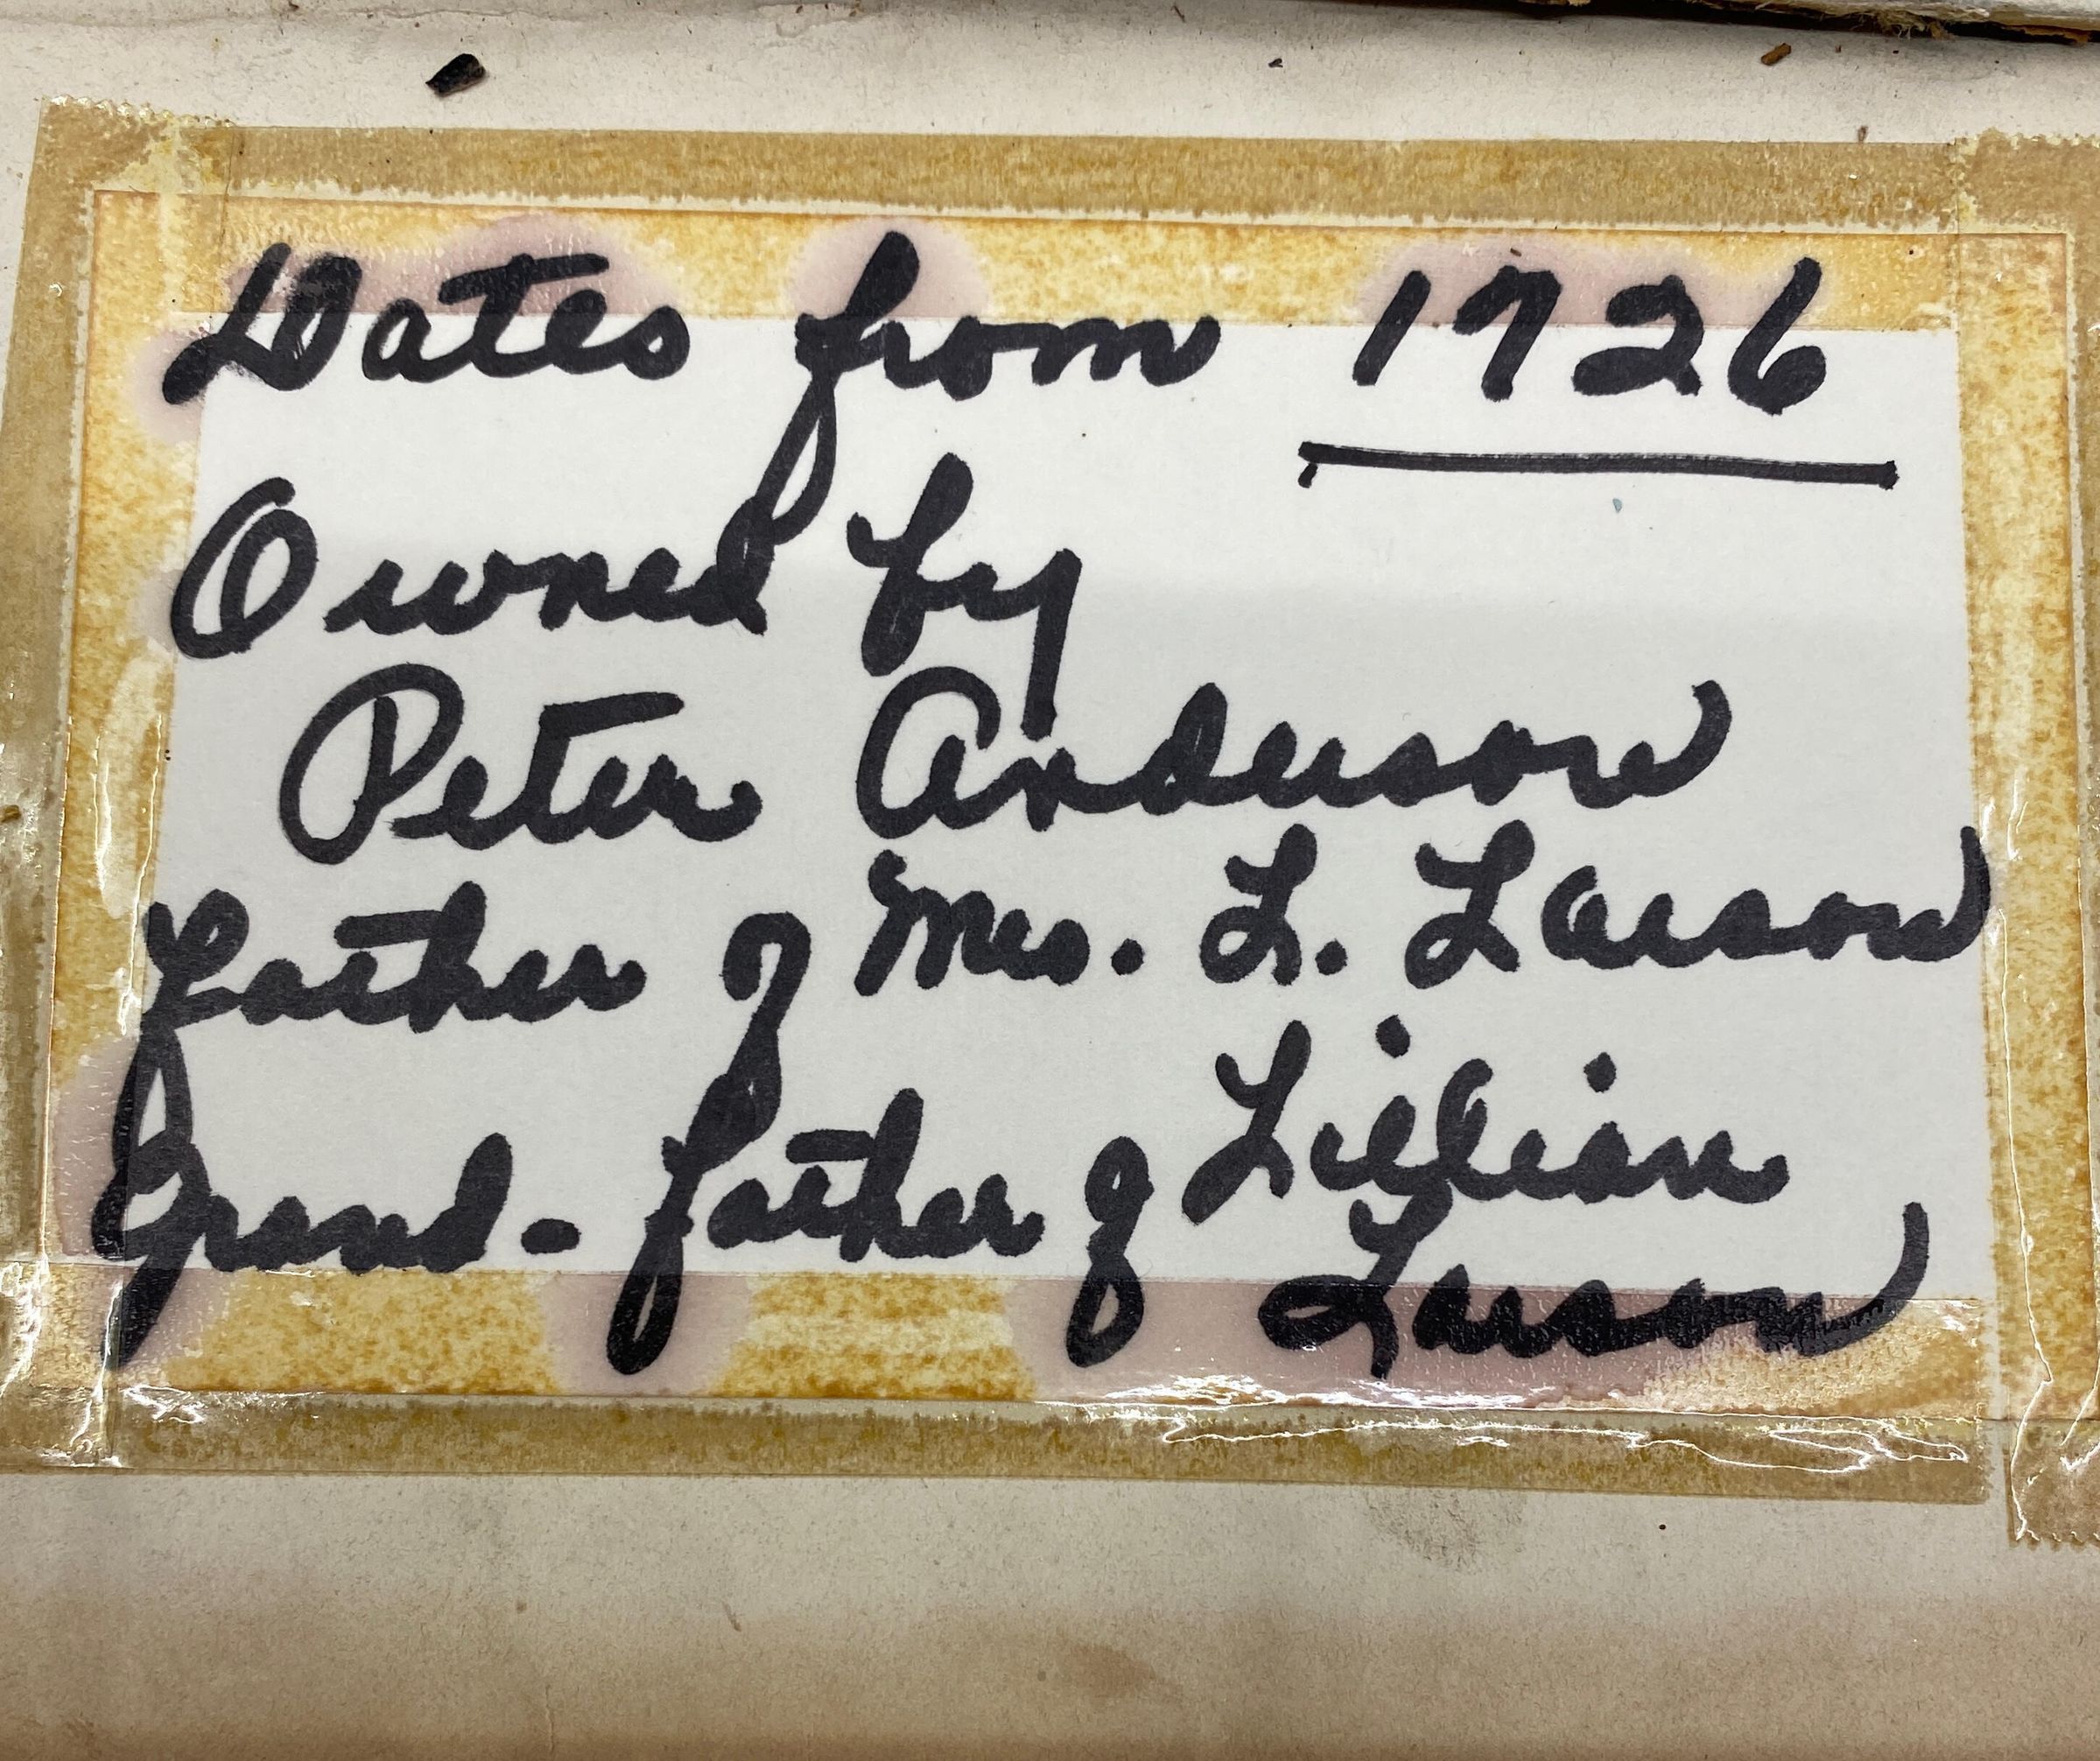 Dates from 1726
Owned by
Peter Anderson
Father of Mrs. L. Larson
Grand-father of Lillian
Larson